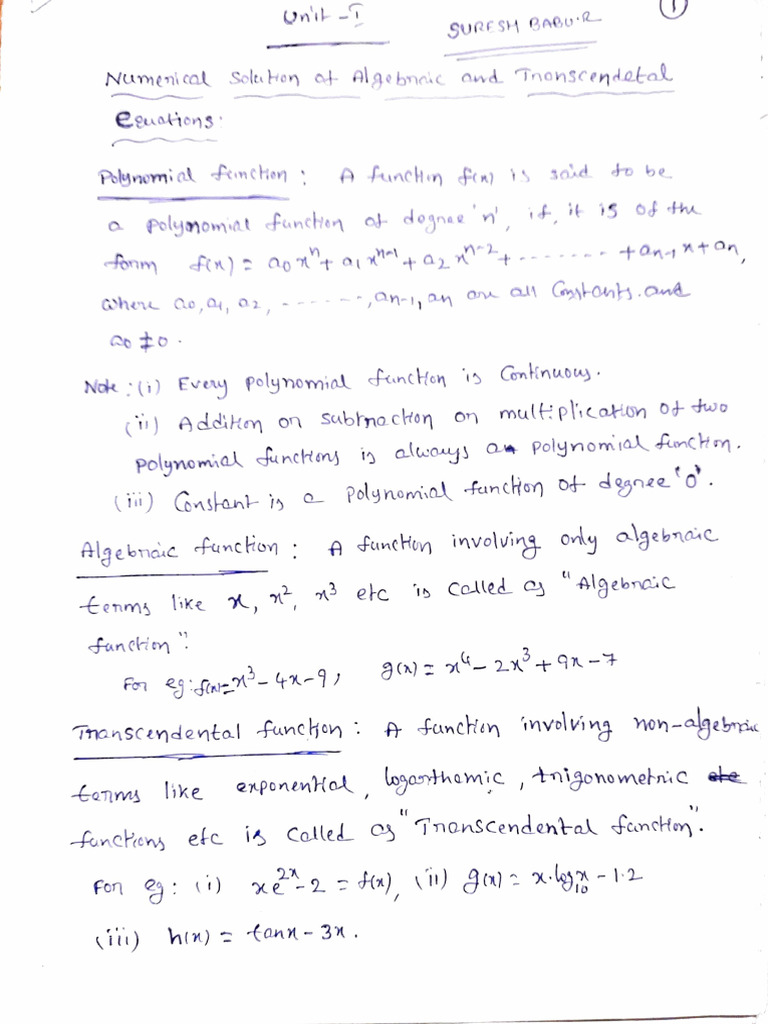 Unit - I
SURESH BABU.R
1
Numerical Solution of Algebraic and Transcendetal
Equations:
Polynomial function : A function f(x) is said to be
a polynomial function of degree 'n', if, it is of the
form f(x) = a₀xⁿ + a₁xⁿ⁻¹ + a₂xⁿ⁻² + ........ + aₙ₋₁x + aₙ,
where a₀, a₁, a₂, ......., aₙ₋₁, aₙ are all Constants. and
a₀ ≠ 0.
Note : (i) Every polynomial function is Continuous.
(ii) Addition or subtraction or multiplication of two
polynomial functions is always a polynomial function.
(iii) Constant is a polynomial function of degree '0'.
Algebraic function : A function involving only algebraic
terms like x, x², x³ etc is called as "Algebraic
function".
For eg: f(x)=x³ - 4x - 9, g(x) = x⁴ - 2x³ + 9x - 7
Transcendental function : A function involving non-algebraic
terms like exponential, logarthomic, trigonometric etc
functions etc is called as "Transcendental function".
For eg: (i) xe²ˣ - 2 = f(x), (ii) g(x) = x.log₁₀x - 1.2
(iii) h(x) = tanx - 3x.